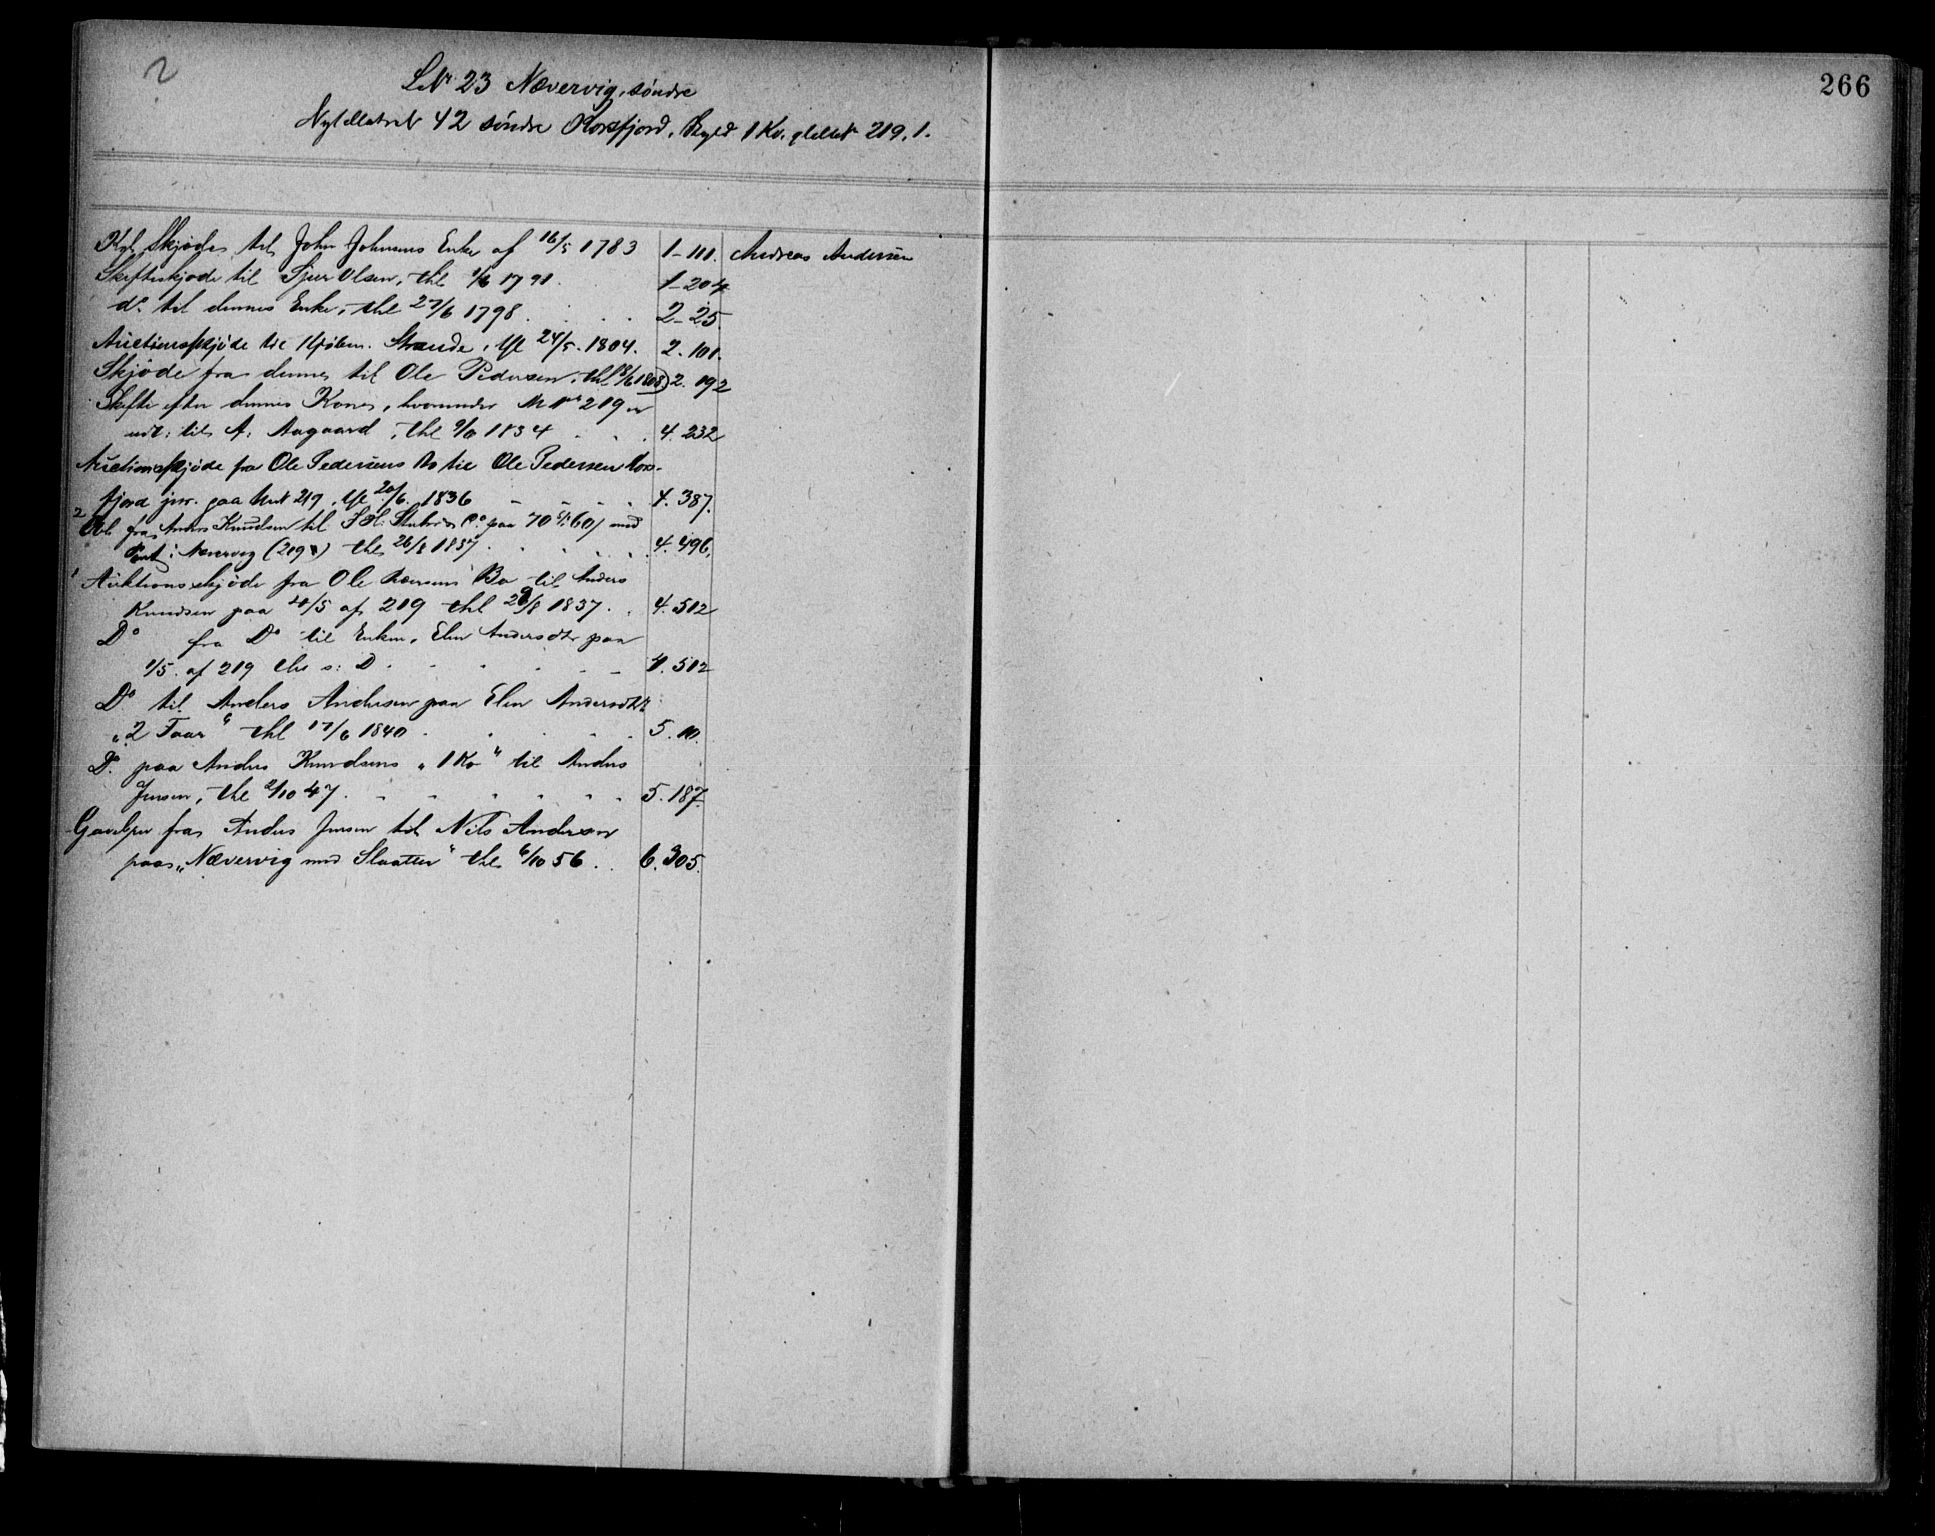 2
266
LNr 23 Nævervig, søndre
Nyt Matrnr 42 søndre Korsfjord, Skyld 1 Kv. gl. 219.1.
Kgl. Skjøde til John Johnsens Enke af 16/5 1783 1-111. Andreas Andersen
Skifteskjøde til Sjur Olsen, thl 1790. 1-204
do. til dennes Enke, thl 27/6 1798 2-25.
Auctionsskjøde til Strande, 24/5 1804. 2. 101.
Skjøde fra denne til Ole Pedersen, thl 18/6 1808 2. 192
Skifte efter dennes Kone, hvorunder MNr 219 er
udl. til A. Aagaard, thl 9/9 1834 4. 232
Auctionsskjøde fra Ole Pedersens Bo til Ole Pedersen Kors-
fjord jnr. paa 219, 20/6 1836 4. 387.
2 Obl. fra Anders Knudsen til Co. paa 70 60 med
Pant i Nævervig (219) thl 26/8 1837 4. 496.
1 Auktionsskjøde fra Ole Bo til Anders
Knudsen paa 4/5 af 219 thl 28/8 1837. 4. 512
Do fra Do til Enken, Elen Andersdtr paa
1/5 af 219 thl s. D. 4. 512
Do til Anders Andersen paa Elen Andersdtr
"2 Faar" thl 17/6 1840 5. 10.
Do. paa Anders Knudsens "1 Ko" til Anders
Jensen, thl 2/10 47. 5. 187.
Gavebrev fra Anders Jensen til Nils Andersen
paa "Nævervig med Slaatten" thl 6/10 56. 6. 305.